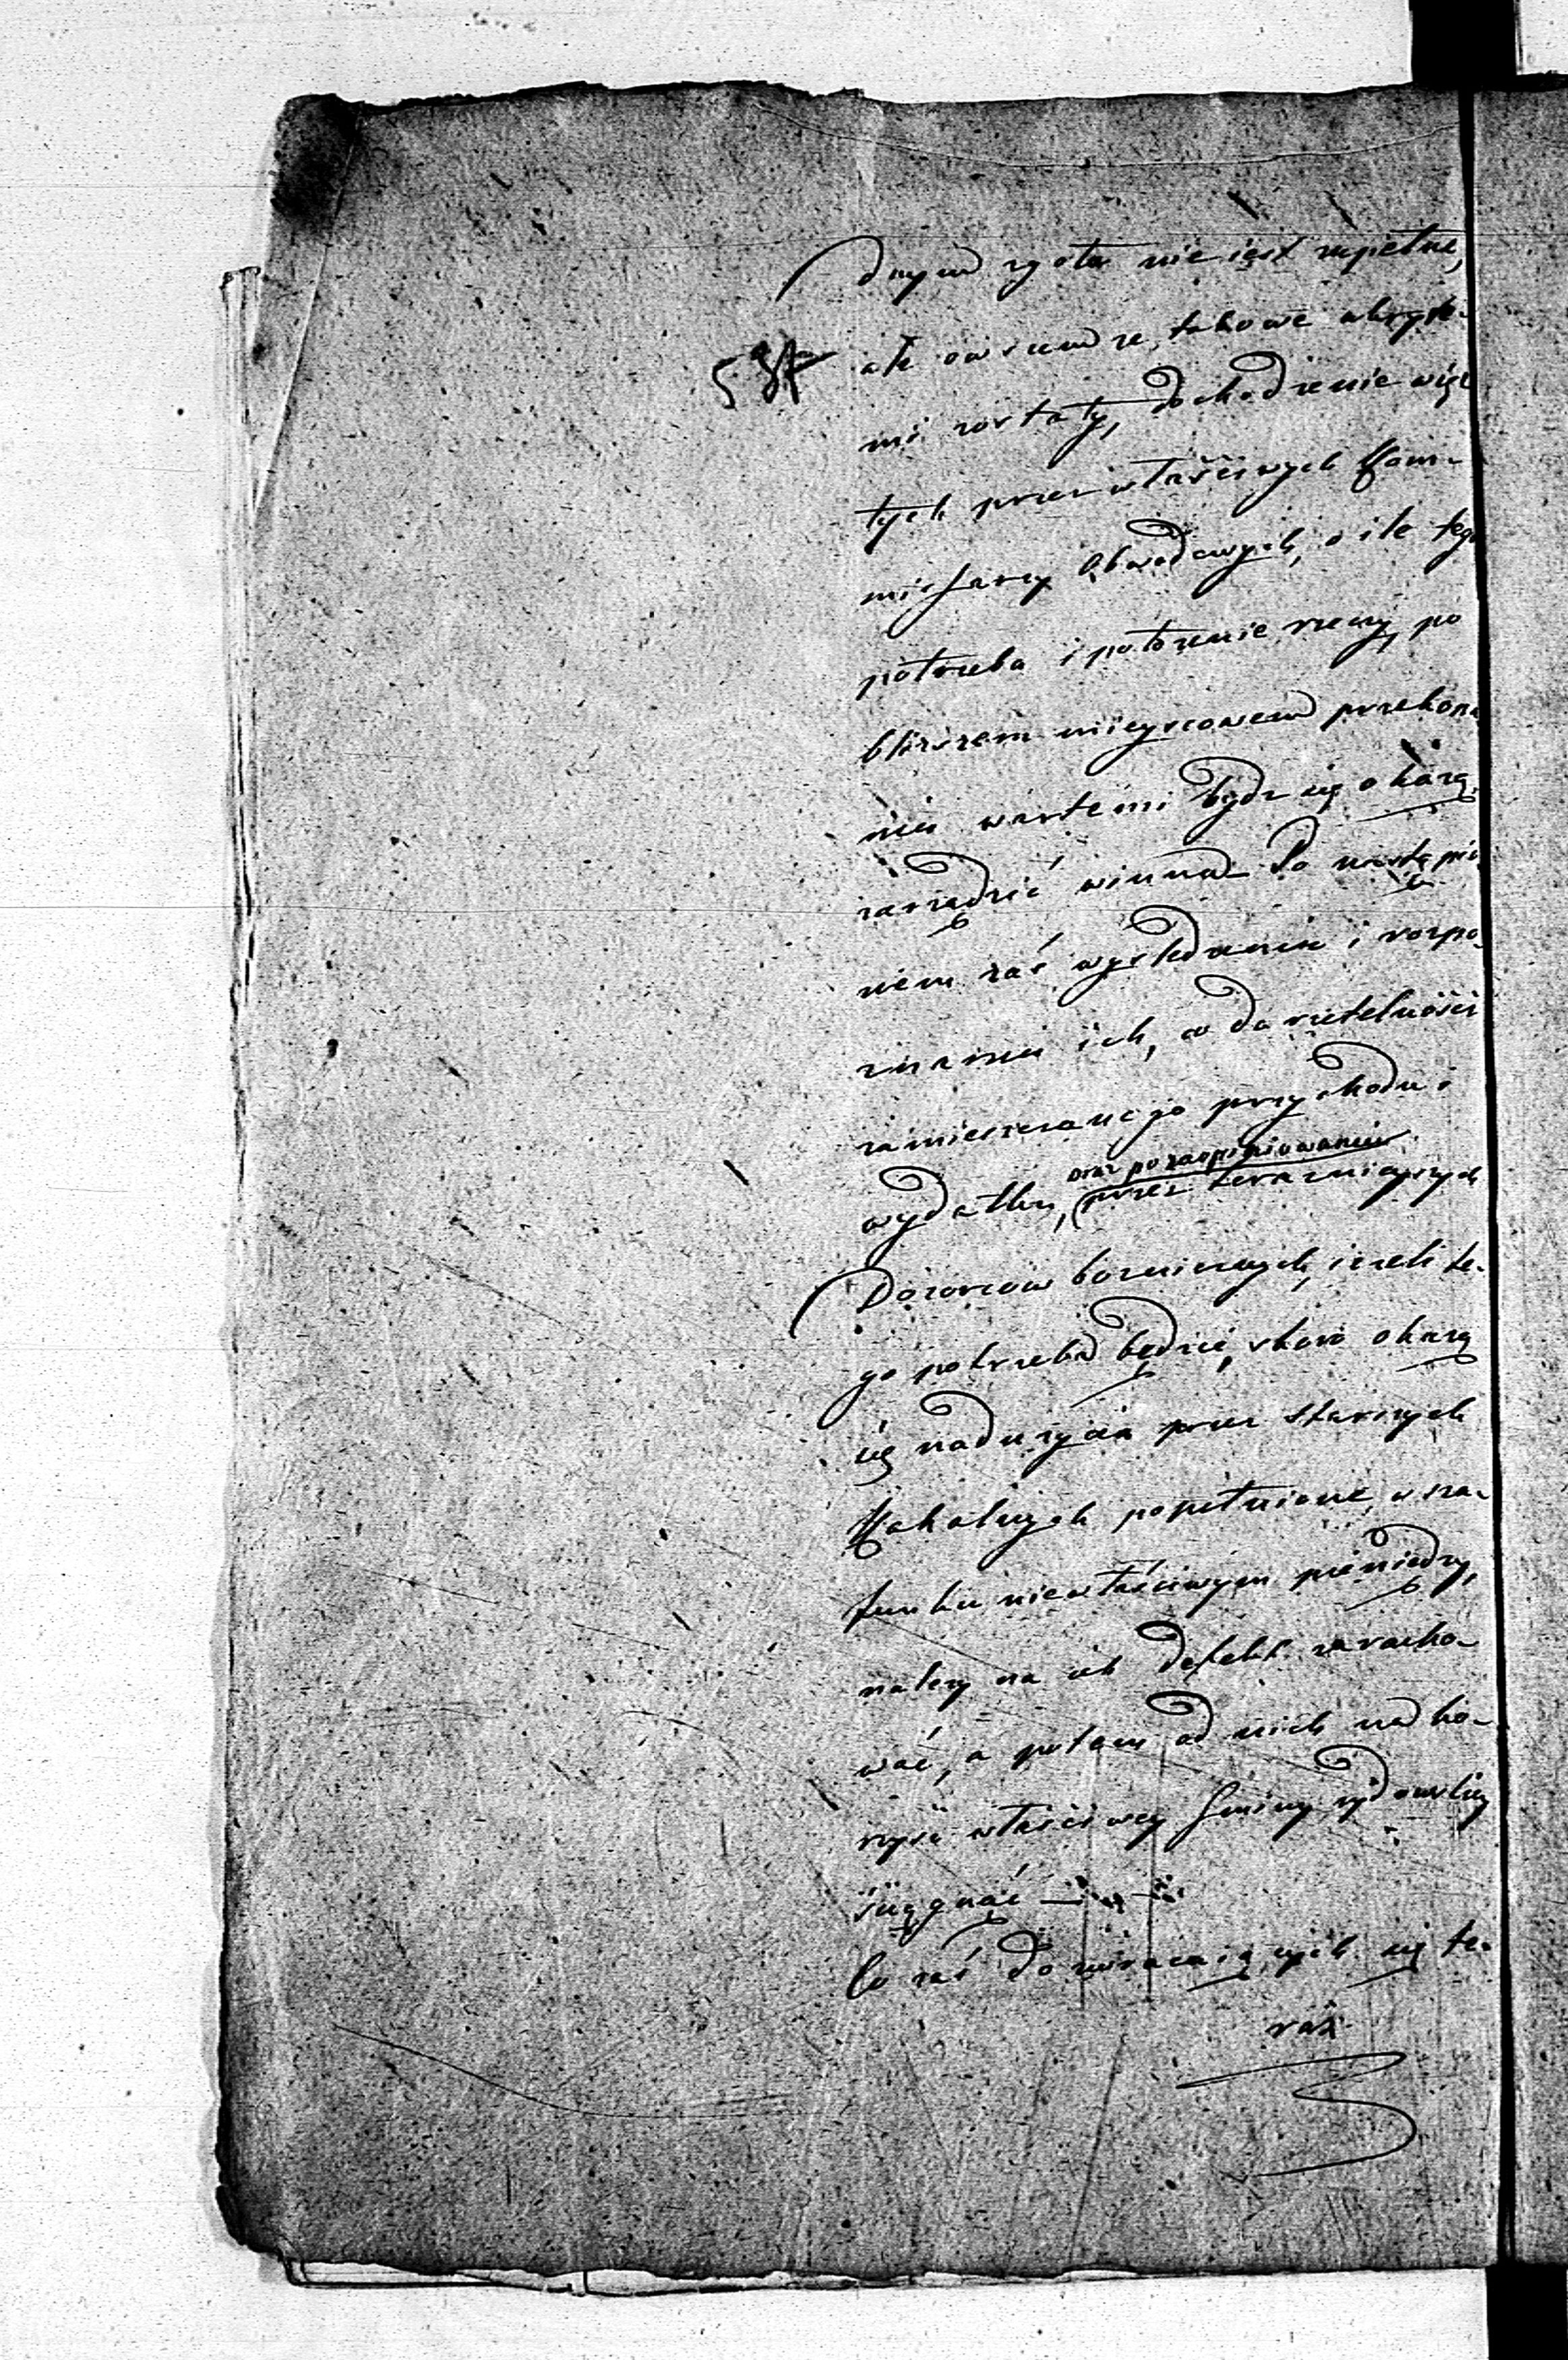 dnym zgoła nie iest zupełne,
ale owszem ze takowe ukryte-
mi zostały, dochodzenie więc
tych przez właściwych Kom-
missarzy Obwodowych, o ile tego
potrzeba i położenie rzeczy, po
bliższem mieyscowem przekona
niu wartemi bydź się okażą
zarządzić winna. Po nastąpio
niem zaś wyśledzeniu i rozpo-
znaniu ich, co do rzetelności
zamieszczonego przychodu i
oraz po zaopiniowaniu
wydatku, (przez teraznieyszych
Dozorców bożniczych, ieżeli te-
go potrzeba będzie, skoro okażą
się nadużycia przez starszych
Kahalnych popełnione, w sza-
funku niewłaściwym pieniędzy,
należy na ich defekt zaracho-
wać, a potem od nich na ko-
rzyść właściwey Gminy żydowskiey
ściągnąć
Co zaś do zwracaiących się te-
raz